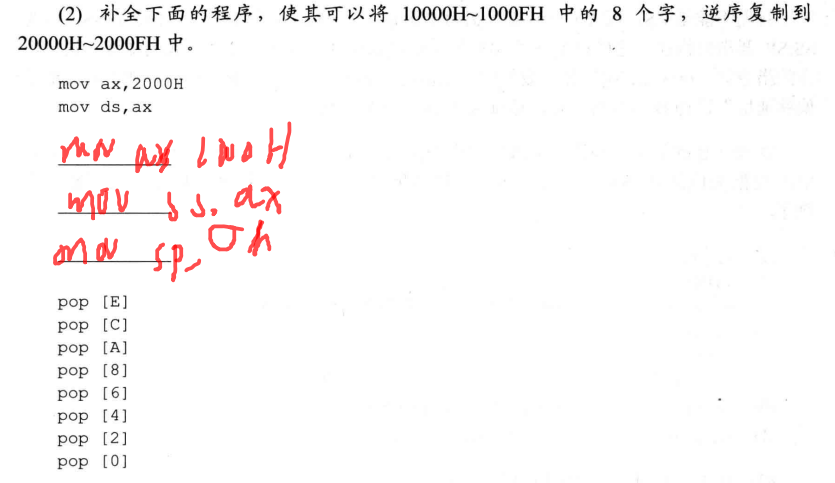 (2) 补全下面的程序，使其可以将 10000H~1000FH 中的 8 个字，逆序复制到
20000H~2000FH 中。
mov ax,2000H
mov ds,ax
mov ax 1000H
mov ss, ax
mov sp, 0h
pop [E]
pop [C]
pop [A]
pop [8]
pop [6]
pop [4]
pop [2]
pop [0]